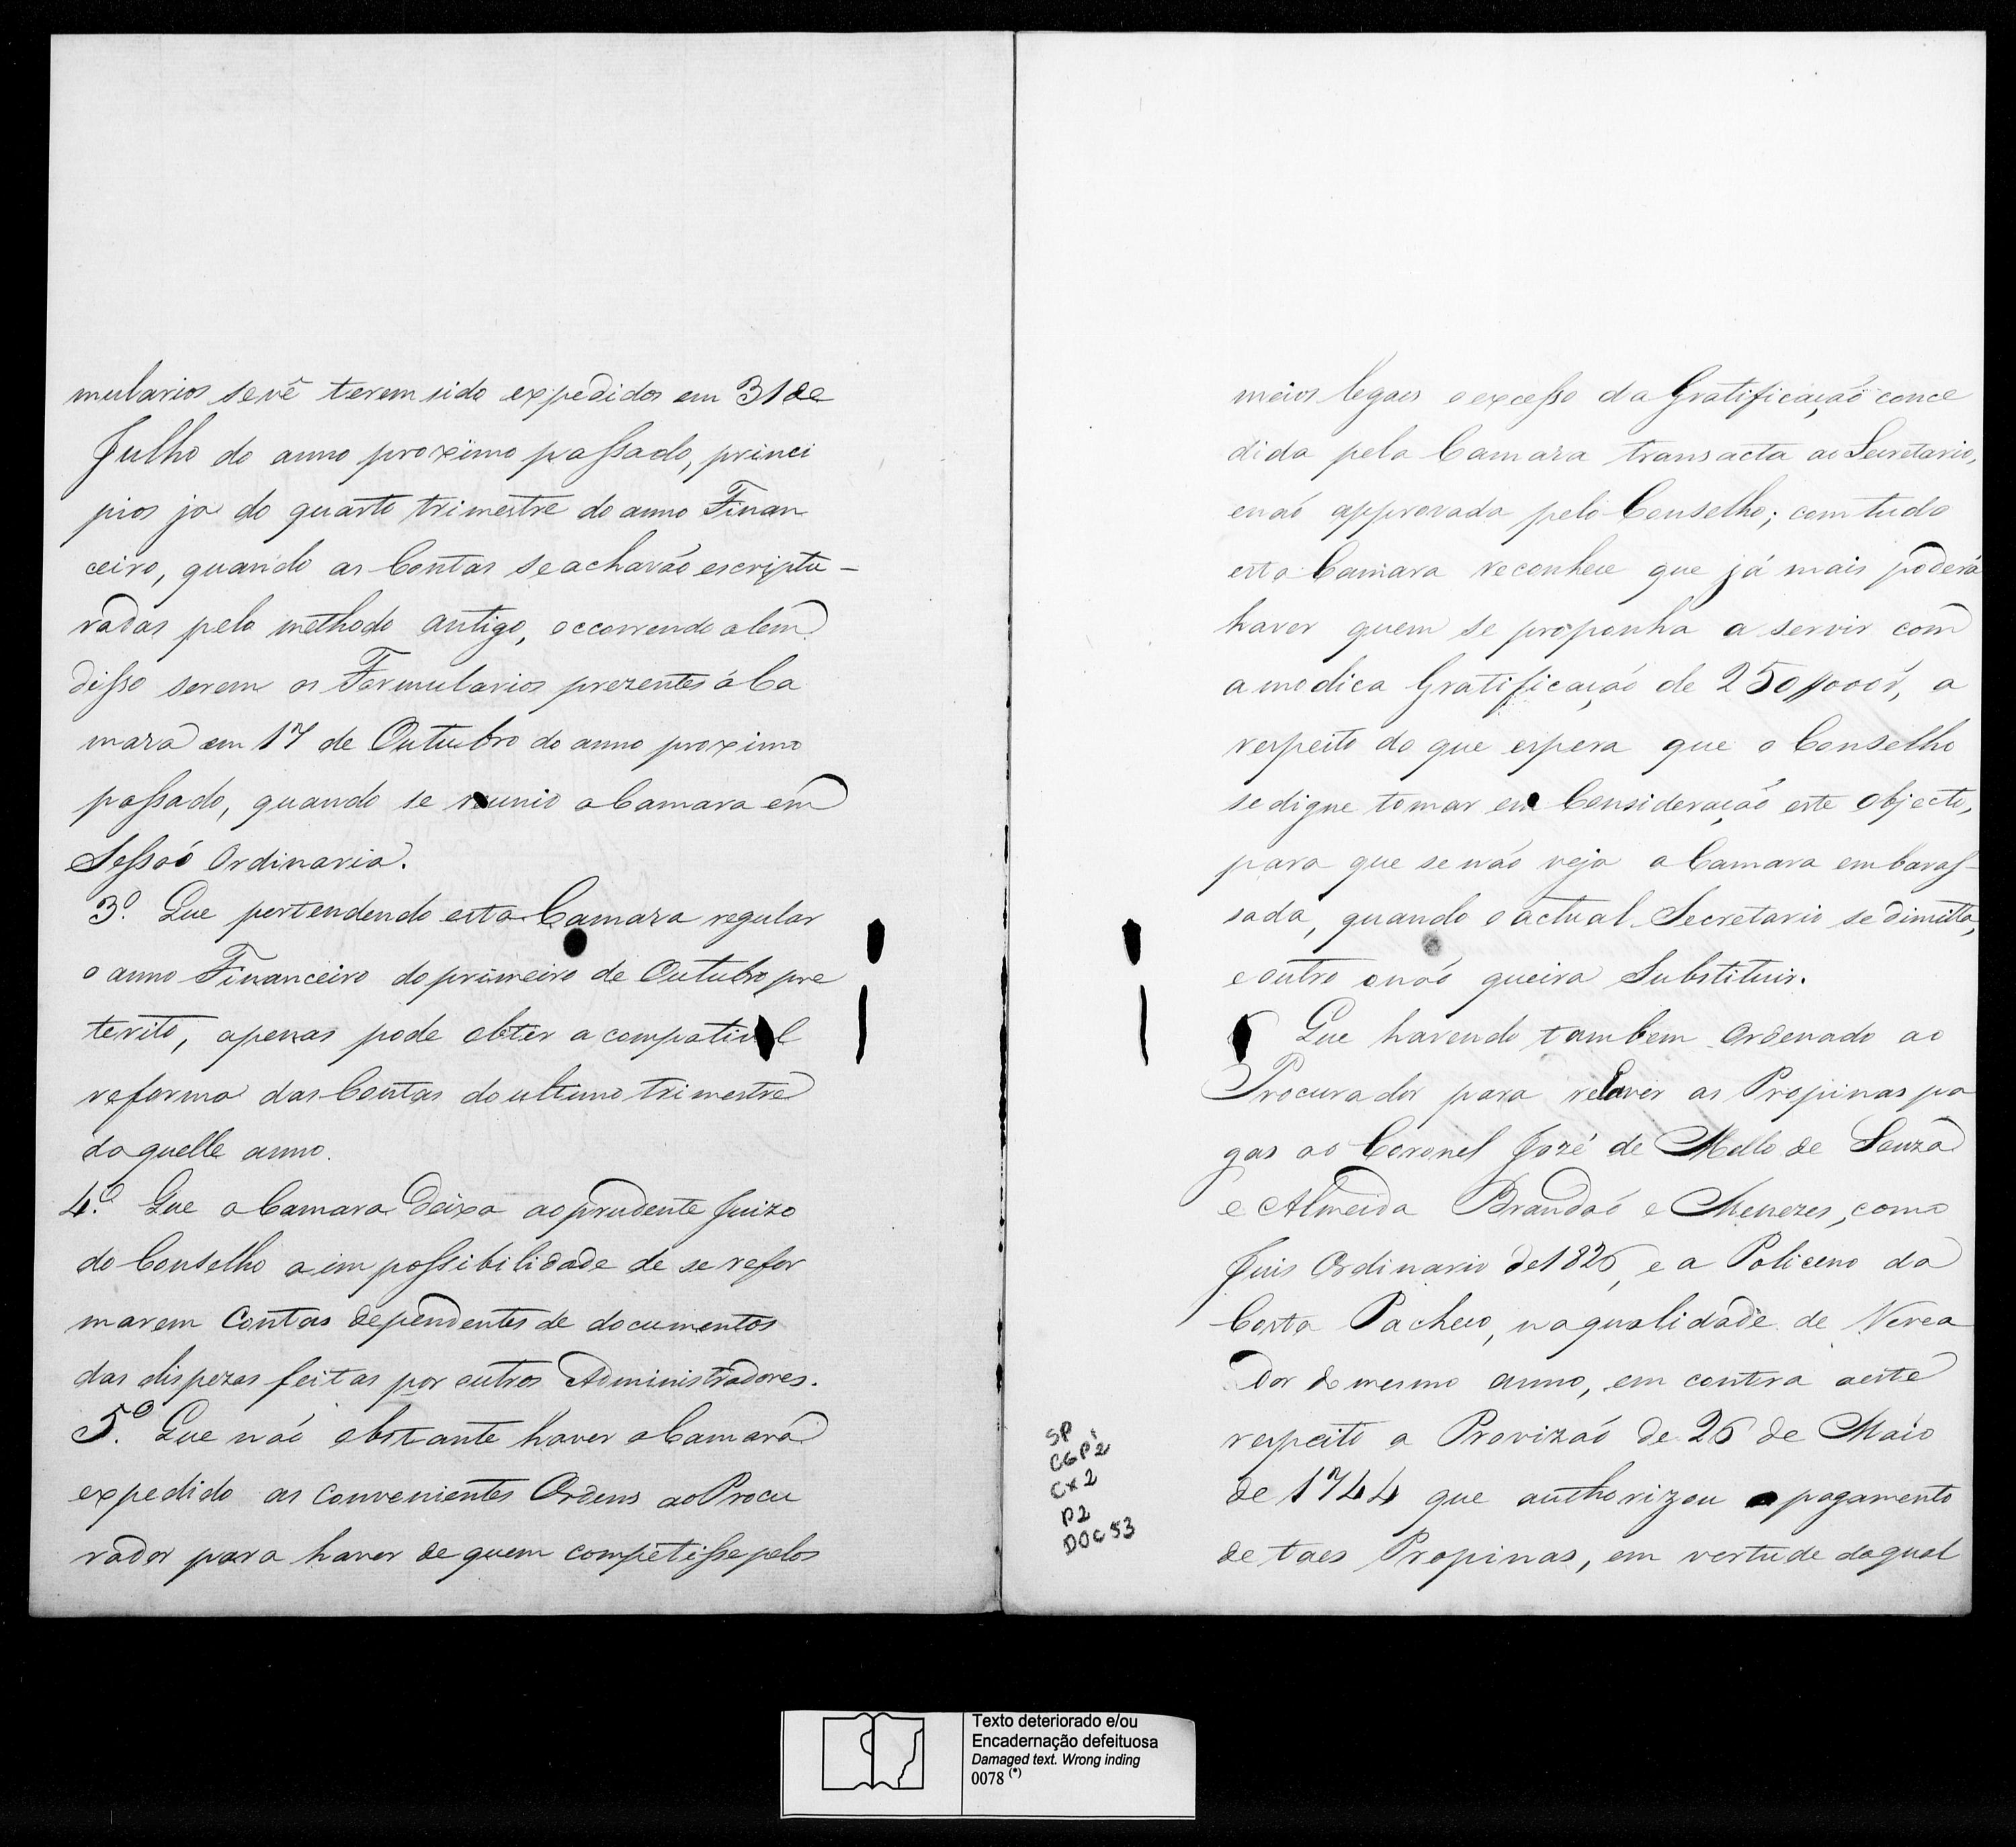 mularios se vê terem sido expedidos em 31 de
Julho do anno proximo passado, princi
pios ja do quarto trimestre do anno Finan
ceiro, quando as Contas se achavão escriptu-
radas pelo methodo antigo, occorrendo alem
disso serem os Formularios prezentes á Ca
mara em 17 de Outubro do anno proximo
passado, quando se reunio a Camara em
Sessaõ Ordinaria.
3.º Que pertendendo esta Camara regular
o anno Financeiro do primeiro de Outubro pre
terito, apenas pode obter a compativel
reforma das Contas do ultimo trimestre
daquelle anno.
4.º Que a Camara deixa ao prudente Juizo
do Conselho a impossibilidade de se refor
marem Contas dependentes de documentos
das dispezas feitas por outros Administradores.
5.º Que naõ obstante haver a Camara
expedido as convenientes Ordens ao Procu
rador para haver de quem competisse pelos
meios legaes o excesso da Gratificaçaõ conce
dida pela Camara transacta ao Secretario,
e naõ approvada pelo Conselho; com tudo
esta Camara reconhece que já mais poderá
haver quem se proponha a servir com
a modica Gratificaçaõ de 250//000r̃, a
respeito do que espera que o Conselho
se digne tomar em Consideraçaõ este objecto,
para que se não veja a Camara embaras-
sada, quando o actual Secretario se dimitta,
e outro o naõ queira Substituir.
6 Que havendo tambem Ordenado ao
Procurador para rehaver as Propinas pa
gas ao Coronel José de Mello de Souza
e Almeida Brandaõ e Menezes, como
Juis Ordinario de 1826, e a Policeno da
Costa Pacheco, na qualidade de Verea
dor do mesmo anno, em contra a este
respeito a Provizaõ de 26 de Maio
de 1744 que authorizou o pagamento
de taes Propinas, em vertude da qual
SP
CGP2
Cx 2
P2
DOC 53
Texto deteriorado e/ou
Encadernação defeituosa
Damaged text. Wrong inding
0078 (*)